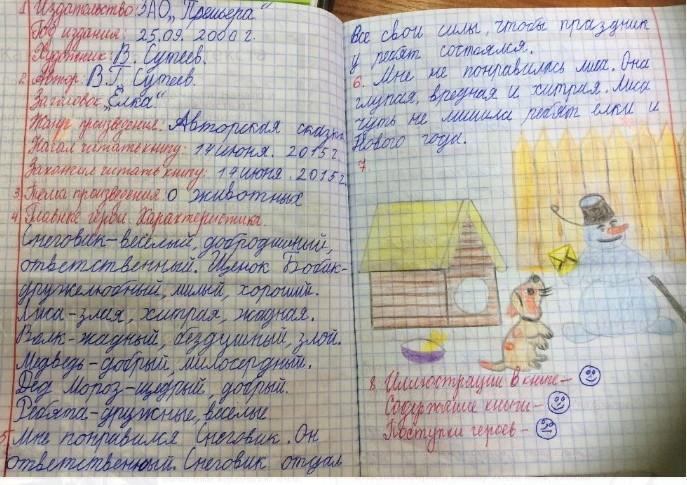 1. Издательство: ЗАО „Премьера“
Год издания: 25.09. 2000 г.
Художник: В. Сутеев.
2. Автор: В.Г. Сутеев.
Заголовок „Ёлка“
Жанр произведения: Авторская сказка
Начал читать книгу: 17 июня. 2015 г.
Закончил читать книгу: 17 июня. 2015 г.
3. Тема произведения: О животных
4. Главные герои. Характеристика.
Снеговик-весёлый, добродушный,
ответственный. Щенок Бобик-
дружелюбный, милый, хороший.
Лиса-злая, хитрая, жадная.
Волк-жадный, бездушный, злой.
Медведь-добрый, милосердный.
Дед Мороз-щедрый, добрый.
Ребята-дружные, веселые
5. Мне понравился Снеговик. Он
ответственный. Снеговик отдал
Все свои силы, чтобы праздник
у ребят состоялся.
6. Мне не понравилась лиса. Она
глупая, вредная и хитрая. Лиса
чуть не лишила ребят елки и
Нового года.
7
8. Иллюстрации в книге-
Содержание книги-
Поступки героев-